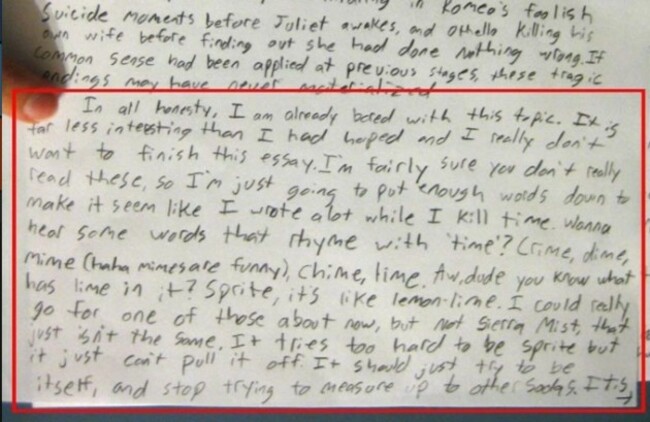 in Romeo's foolish
Suicide moments before Juliet awakes, and Othello killing his
own wife before finding out she had done nothing wrong. If
common sense had been applied at previous stages, these tragic
endings may have never materialized
In all honesty, I am already bored with this topic. It is
far less interesting than I had hoped and I really don't
want to finish this essay. I'm fairly sure you don't really
read these, so I'm just going to put enough words down to
make it seem like I wrote alot while I kill time. Wanna
hear some words that rhyme with 'time'? Crime, dime,
mime (haha mimes are funny), Chime, lime. Aw, dude you know what
has lime in it? Sprite, it's like lemon-lime. I could really
go for one of those about now, but not Sierra Mist, that
just isn't the same. It tries too hard to be sprite but
it just can't pull it off. It should just try to be
itself, and stop trying to measure up to other sodas. It is